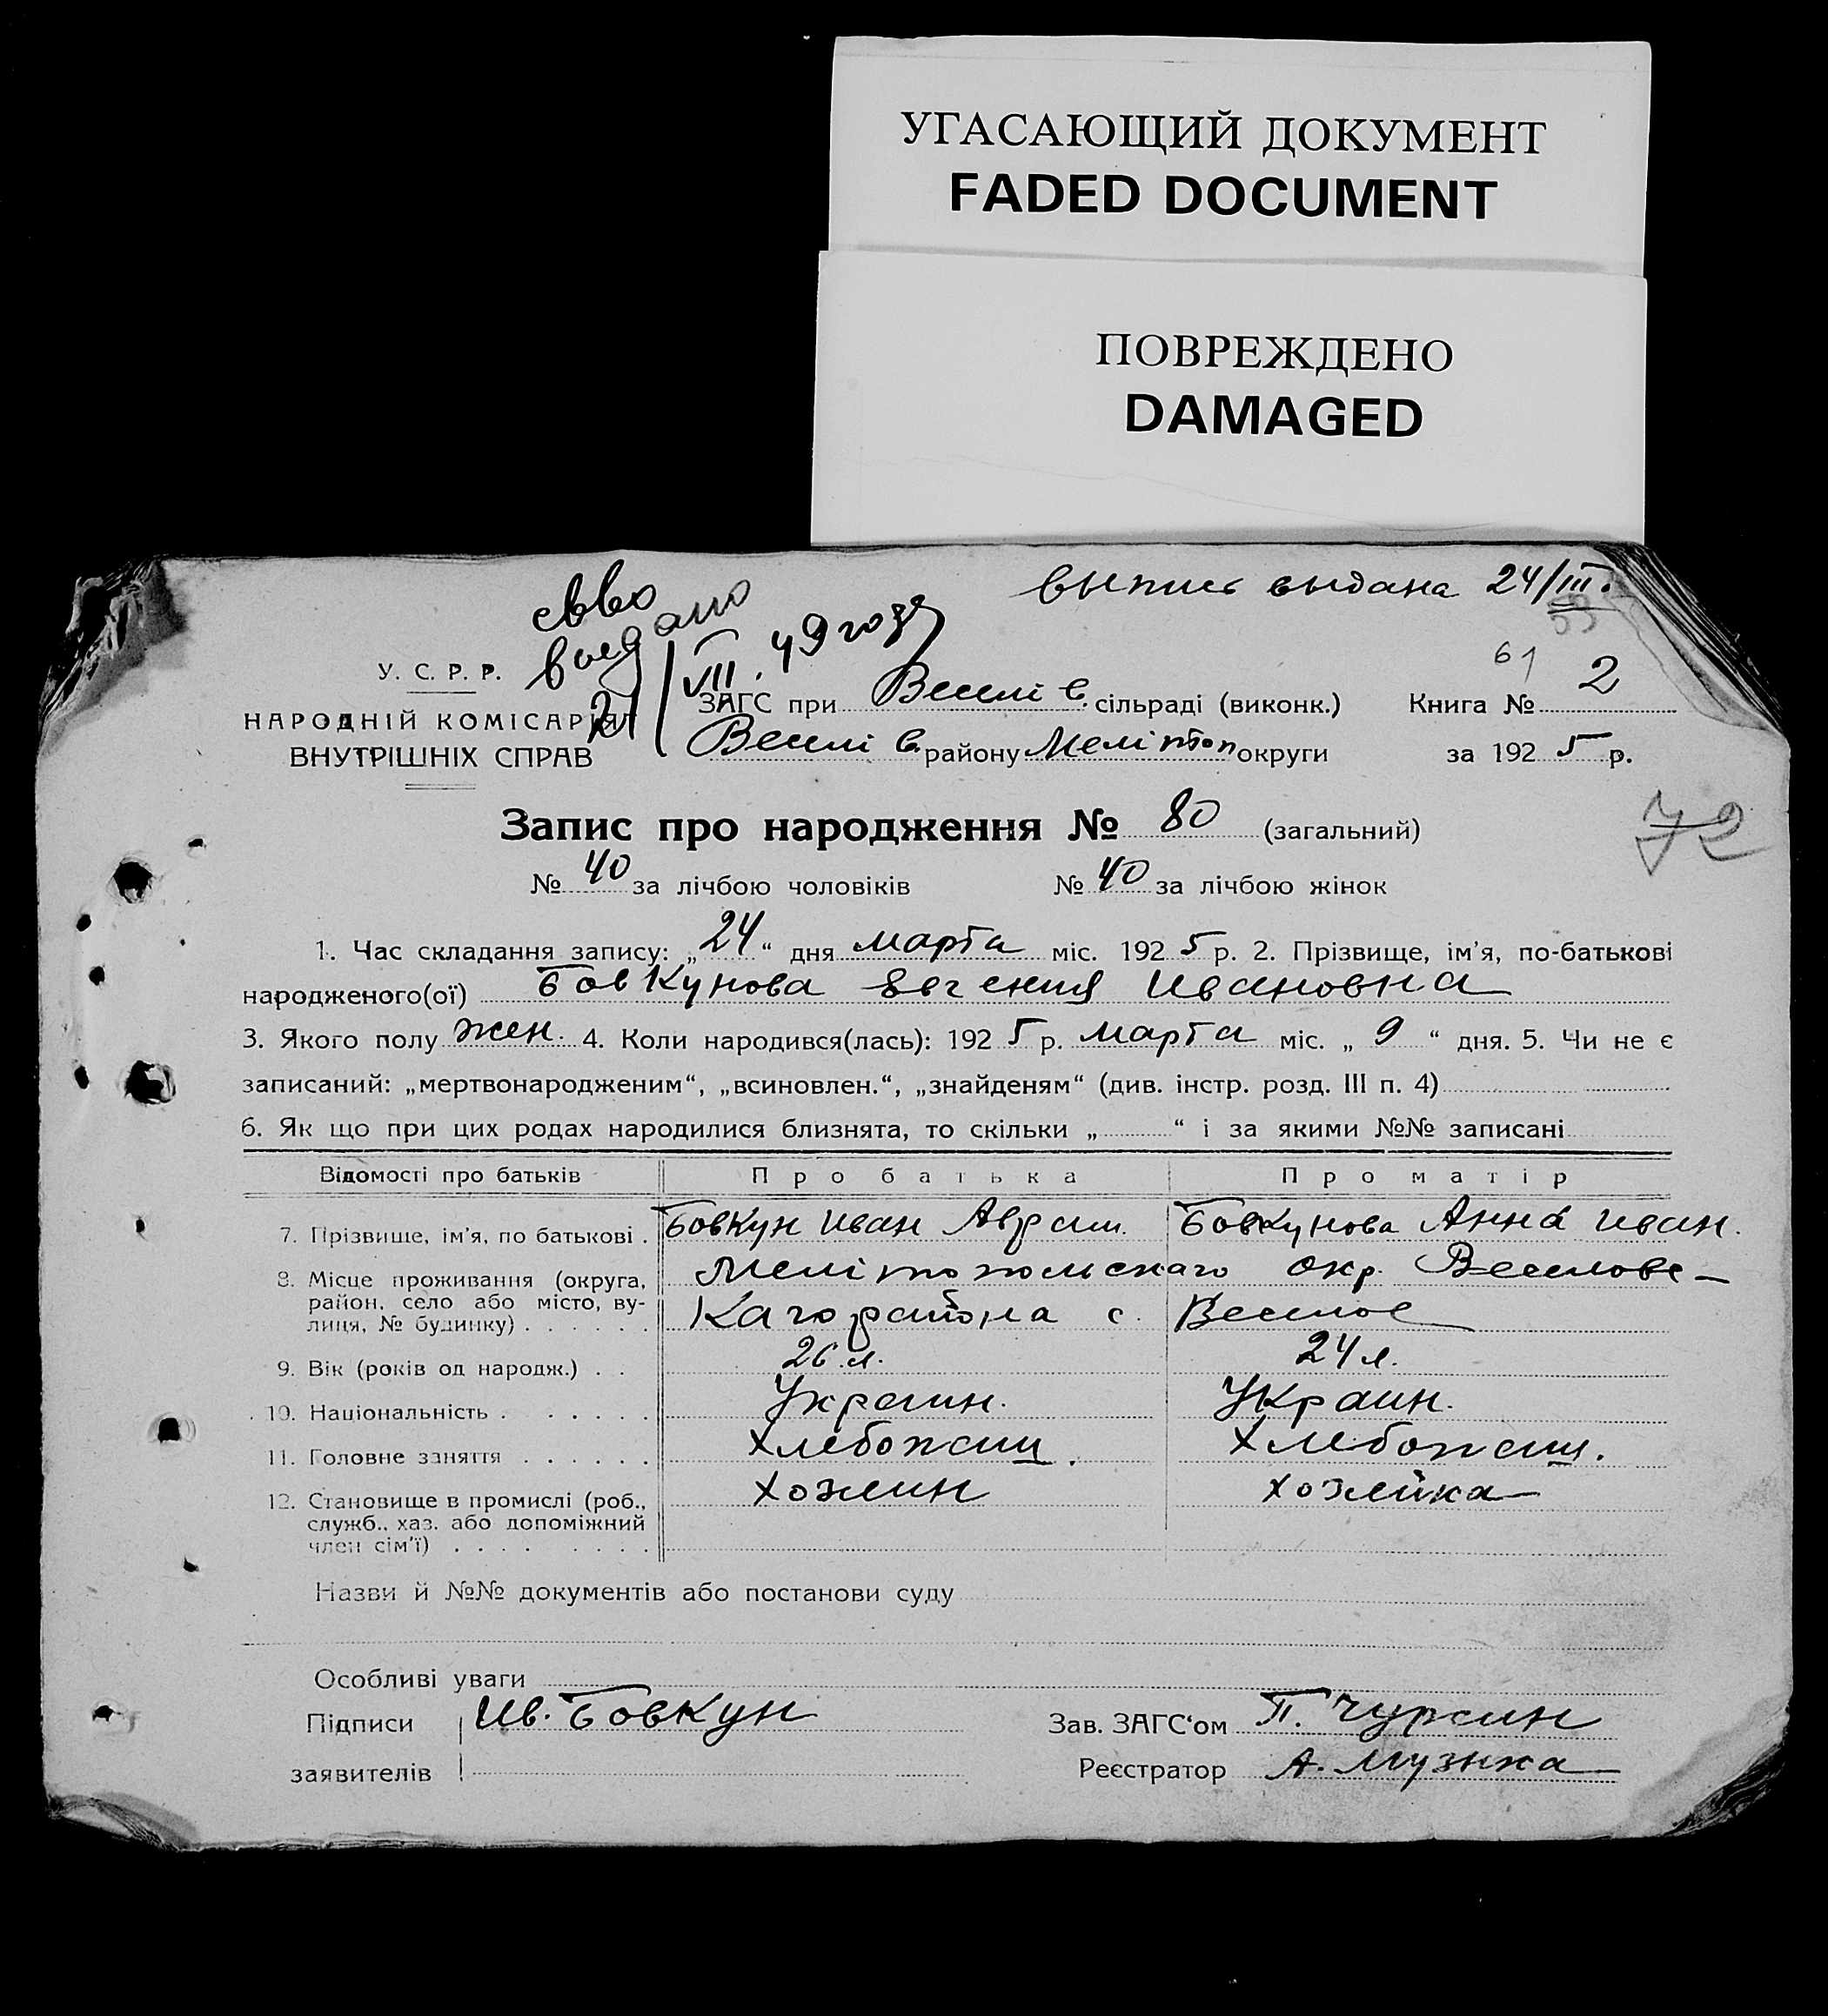 УГАСАЮЩИЙ ДОКУМЕНТ
FADED DOCUMENT
ПОВРЕЖДЕНО
DAMAGED
выпись выдана 24/III.
сво
выдано
21/VII. 49 года
61
У. С. Р. Р.
НАРОДНІЙ КОМІСАРІЯТ
ВНУТРІШНІХ СПРАВ
ЗАГС при Веселів. сільраді (виконк.) Книга № 2
Веселів. району Мелітоп округи за 1925 р.
72
Запис про народження № 80 (загальний)
№ 40 за лічбою чоловіків № 40 за лічбою жінок
1. Час складання запису: „24“ дня марта міс. 1925 р. 2. Прізвище, ім'я, по-батькові
народженого(ої) Бовкунова Евгения Ивановна
3. Якого полу жен. 4. Коли народився(лась): 1925 р. марта міс. „ 9 “ дня. 5. Чи не є
записаний: „мертвонародженим“, „всиновлен.“, „знайденям“ (див. інстр. розд. III п. 4)
6. Як що при цих родах народилися близнята, то скільки „ “ і за якими №№ записані
Відомості про батьків Про батька Про матір
7. Прізвище, ім'я, по батькові . Бовкун Иван Аврам. Бовкунова Анна Иван.
8. Місце проживання (округа, район, село або місто, вулиця, № будинку) . . . . . . Мелітопольскаго окр. Веселовс-
Каго района с. Веселое
9. Вік (років од народж.) . . 26 л. 24 л.
10. Національність . . . . . . Украин. Украин.
11. Головне заняття . . . . . . Хлебопащ. Хлебопащ.
12. Становище в промислі (роб., служб., хаз. або допоміжний член сім'ї) . . . . . . . . Хозяин хозяйка
Назви й №№ документів або постанови суду
Особливі уваги
Підписи Ив. Бовкун Зав. ЗАГС'ом П. Чурсин
заявителів Реєстратор А. Музыка